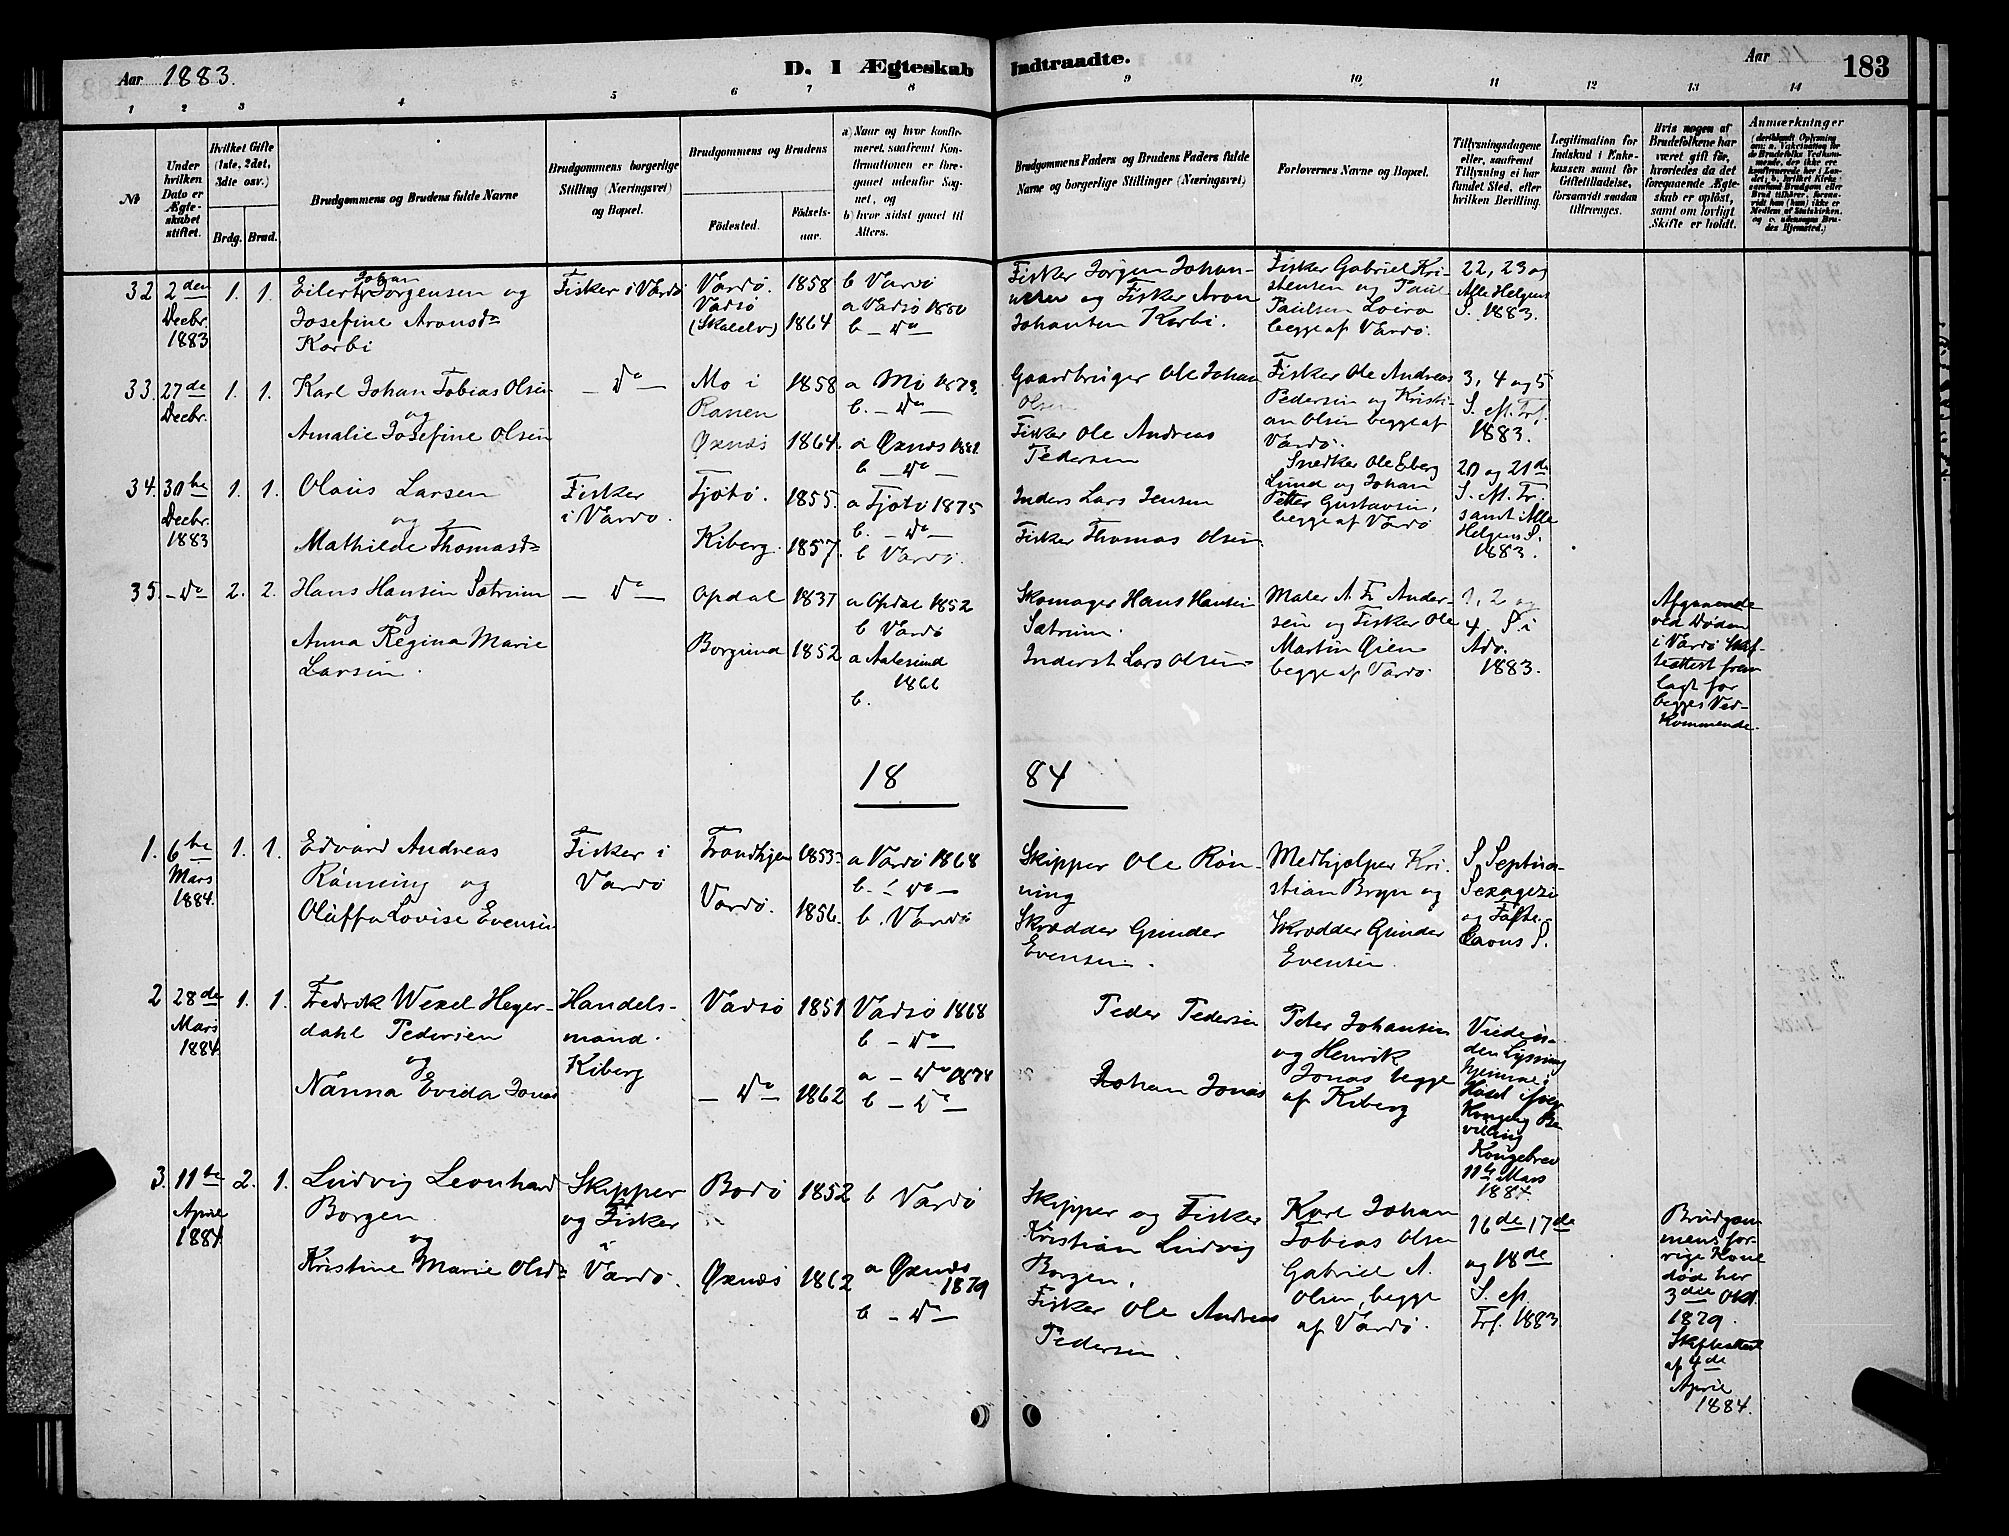 Aar 1883.
D. I Ægteskab Indtraadte.
Aar
183
1 2 3 4 5 6 7 8 9 10 11 12 13 14
№
Under hvilken Dato er Ægteskabet stiftet.
Hvilket Gifte (1ste, 2det, 3die osv.)
Brdg. Brud.
Brudgommens og Brudens fulde Navne
Brudgommens borgerlige Stilling (Næringsvei) og Bopæl.
Brudgommens og Brudens
Fødested.
Fødselsaar.
a) Naar og hvor konfirmeret, saafremt Konfirmationen er foregaaet udenfor Sognet, og
b) hvor sidst gaaet til Alters.
Brudgommens Faders og Brudens Faders fulde Navne og borgerlige Stillinger (Næringsvei)
Forlovernes Navne og Bopæl.
Tillysningsdagene eller, saafremt Tillysning ei har fundet Sted, efter hvilken Bevilling.
Legitimation for Indskud i Enkekassen samt for Giftetilladelse, forsaavidt saadan tiltrænges.
Hvis nogen af Brudefolkene har været gift før, hvorledes da det foregaaende Ægteskab er opløst, samt om lovligt Skifte er holdt.
Anmærkninger
32 2den Decbr. 1883
1. 1.
Eilert Johan Jørgensen og
Josefine Aronsd.
Karbi
Fisker i Vardø
Vardø. 1858
Vadsø (Skalelv) 1864
b Vardø
a Vadsø 1880
b – Do –
Fisker Jørgen Johansen og Fisker Aron
Johansen Karbi.
Fisker Gabriel Kristensen og Paul
Paulsen
begge af Vardø.
22, 23 og
Alle Helgens
S. 1883.
33. 27de Decbr.
1. 1.
Karl Johan Tobias Olsen
og
Amalie Josefine Olsen
– Do –
Mo i Ranen 1858
Øxnæs 1864.
a Mo 1873.
b. – Do –
a Øxnæs
b – Do –
Gaardbruger Ole Johan
Olsen
Fisker Ole Andreas
Pedersen
Fisker Ole Andreas
Pedersen og Kristian Olsen begge af
Vardø.
3, 4 og 5
S. eft. Trf.
1883.
34. 30te Decbr. 1883
1. 1.
Olaus Larsen
og
Mathilde Thomasd.
Fisker
i Vardø.
Tjøtø. 1855.
Kiberg. 1857.
a Tjøtø 1875
b. – Do –
b Vardø.
Inders Lars Jensen
Fisker Thomas Olsen.
Snedker Ole Eberg
Lund og Johan
Petter Gustavsen,
begge af Vardø
20 og 21de
S. eft. Tr.
samt Alle
Helgens S.
1883.
35. – Do
2. 2.
Hans Hansen Sætrum
og
Anna Regina Marie
Larsen.
– Do –
Opdal 1837
Borgund 1852
a Opdal 1852
b Vardø
a Aalesund
1866
b.
Skomager Hans Hansen
Sætrum.
Inderst Lars Olsen
Maler A. Fr. Andersen og Fisker Ole
Martin Øien
begge af Vardø.
1, 2 og
4. S. i
Adv.
1883.
Afgaaende
ved Døden
i Vardø Skifteattest fremlagt for
begges Vedkommende.
18 84
1. 6te Mars 1884.
1. 1.
Edvard Andreas
Rønning og
Oluffa Lovise Evensen
Fisker i
Vardø
Trondhjem 1853.
Vardø. 1856.
a Vardø 1868
b. – Do –
b. Vardø
Skipper Ole Rønning
Skrædder Gunder
Evensen.
Medhjælper Kristian Bryn og
Skrædder Gunder
Evensen.
S. Septua-
Sexagesi
og Fastelavns S.
2 28de Mars 1884
1. 1.
Fredrik Wexel Hegerdahl Pedersen
og
Nanna Evida Jonas
Handelsmand.
Kiberg
Vadsø 1851
– Do – 1862
Vadsø 1868
b – Do –
a – Do 1874
b – Do –
Peder Pedersen
Johan Jonas
Peter Johansen
og Henrik
Jonas begge
af Kiberg
Viede uden Lysning
hjemme i
Huset ifølge
Kongelig Bevilling
Kongebrev
11te Mars
1884.
3. 11te April 1884.
2. 1.
Ludvig Leonhard
Borgen.
og
Kristine Marie Olsd.
Skipper
og Fisker
i
Vardø.
Bodø 1852
Øxnæs 1862
b Vardø
a Øxnæs
1879
b – Do –
Skipper og Fisker
Kristian Ludvig
Borgen.
Fisker Ole Andreas
Pedersen.
Karl Johan
Tobias Olsen
Gabriel A.
Olsen, begge
af Vardø.
16de 17de
og 18de
S. eft.
Trf. 1883
Brudgommens forrige Kone
død her
3die Okt.
1879.
Skifteattest
af 4de
April
1884.